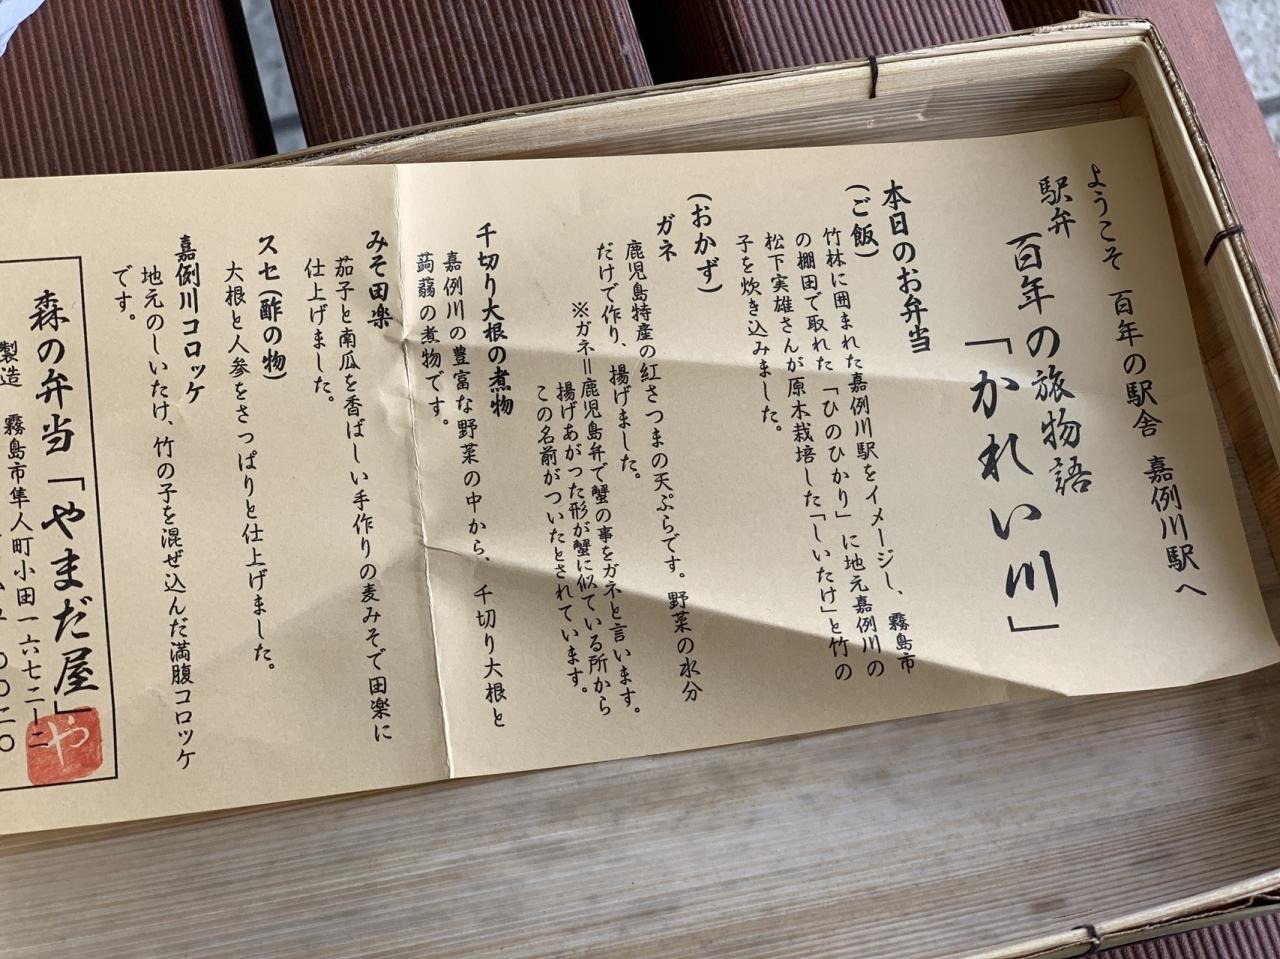 ようこそ 百年の駅舎 嘉例川駅へ
駅弁 百年の旅物語
「かれい川」
本日のお弁当
(ご飯)
竹林に囲まれた嘉例川駅をイメージし、霧島市
の棚田で取れた「ひのひかり」に地元嘉例川の
松下実雄さんが原木栽培した「しいたけ」と竹の
子を炊き込みました。
(おかず)
ガネ
鹿児島特産の紅さつまの天ぷらです。野菜の水分
だけで作り、揚げました。
※ガネ=鹿児島弁で蟹の事をガネと言います。
揚げあがった形が蟹に似ている所から
この名前がついたとされています。
千切り大根の煮物
嘉例川の豊富な野菜の中から、千切り大根と
蒟蒻の煮物です。
みそ田楽
茄子と南瓜を香ばしい手作りの麦みそで田楽に
仕上げました。
スセ(酢の物)
大根と人参をさっぱりと仕上げました。
嘉例川コロッケ
地元のしいたけ、竹の子を混ぜ込んだ満腹コロッケ
です。
森の弁当「やまだ屋」
や
製造 霧島市隼人町小田一六七二ー二